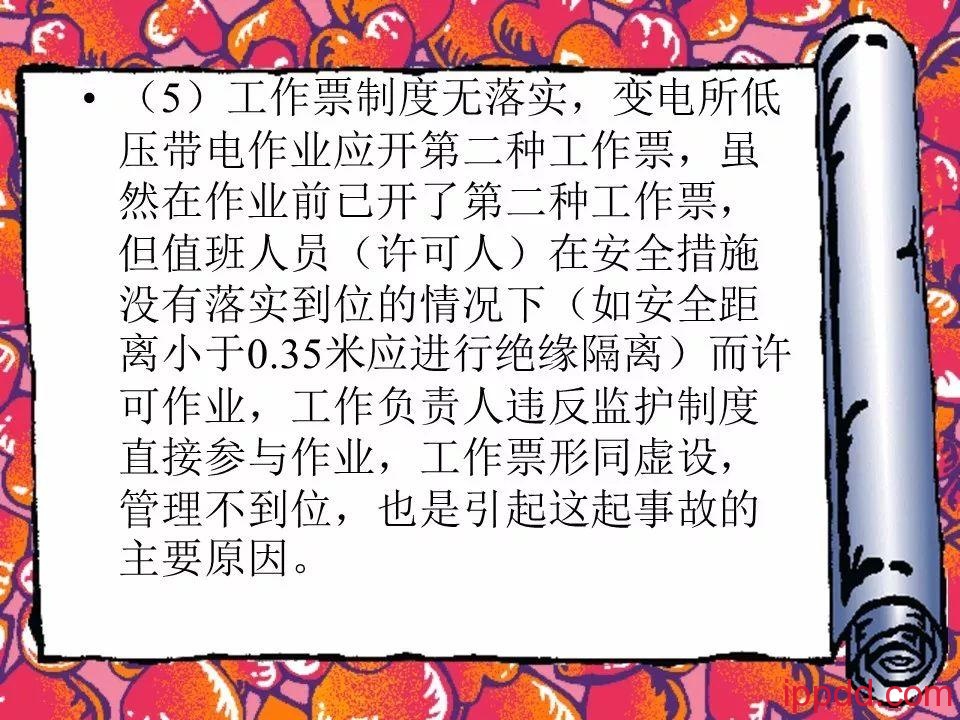 • （5）工作票制度无落实，变电所低
压带电作业应开第二种工作票，虽
然在作业前已开了第二种工作票，
但值班人员（许可人）在安全措施
没有落实到位的情况下（如安全距
离小于0.35米应进行绝缘隔离）而许
可作业，工作负责人违反监护制度
直接参与作业，工作票形同虚设，
管理不到位，也是引起这起事故的
主要原因。
ippdd.com